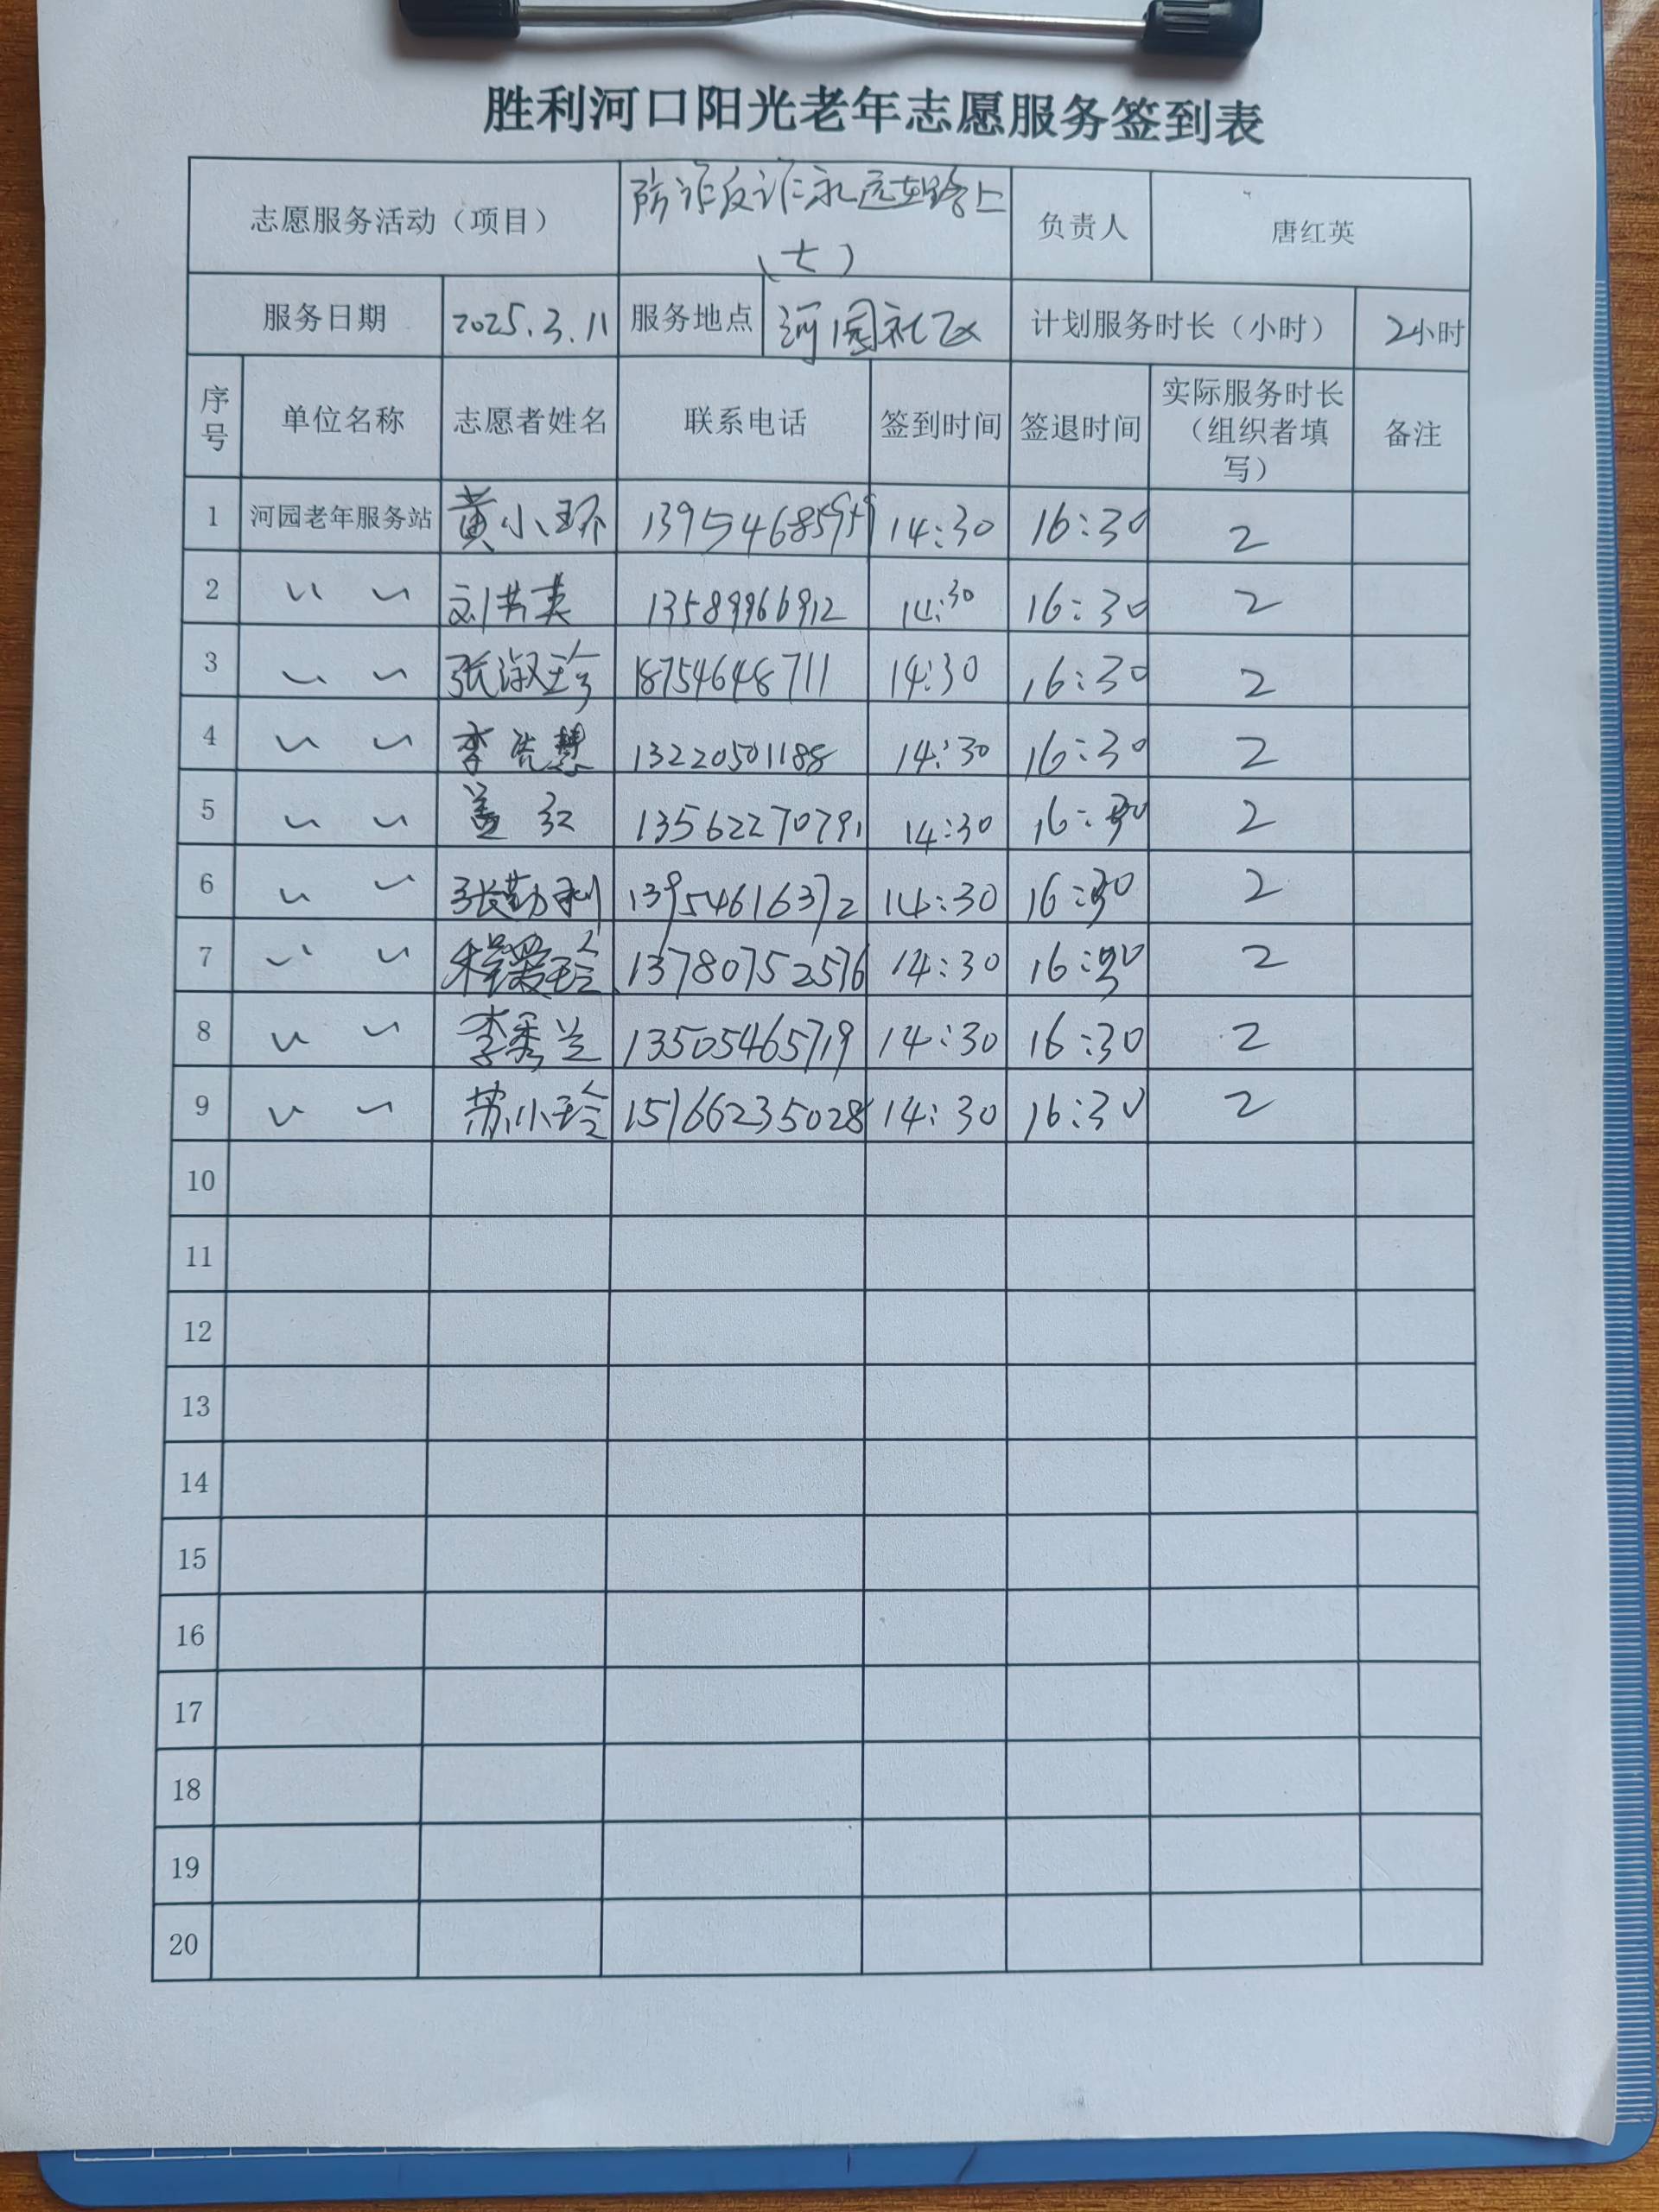 胜利河口阳光老年志愿服务签到表
志愿服务活动（项目） 防诈反诈永远在路上（七） 负责人 唐红英
服务日期 2025.3.11 服务地点 河园社区 计划服务时长（小时） 2小时
序号 单位名称 志愿者姓名 联系电话 签到时间 签退时间 实际服务时长（组织者填写） 备注
1 河园老年服务站 黄小环 14:30 16:30 2
2 〃 〃 13589966912 14:30 16:30 2
3 〃 〃 张淑珍 18754648711 14:30 16:30 2
4 〃 〃 13220501188 14:30 16:30 2
5 〃 〃 盖红 13562270791 14:30 16:30 2
6 〃 〃 张勤利 13954616372 14:30 16:30 2
7 〃 〃 程爱玲 13780752576 14:30 16:30 2
8 〃 〃 李秀兰 13505465719 14:30 16:30 2
9 〃 〃 苏小玲 15166235028 14:30 16:30 2
10
11
12
13
14
15
16
17
18
19
20